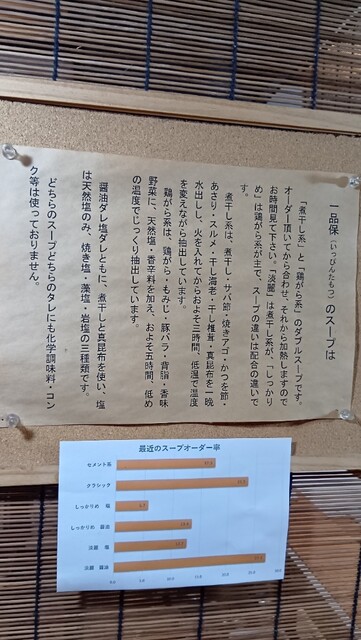 一品保（いっぴんたもつ）のスープは
「煮干し系」と「鶏がら系」のダブルスープです。
オーダー頂いてから合わせ、それから加熱しますので
お時間見て下さい。「淡麗」は煮干し系が、「しっかり
め」は鶏がら系が主で、スープの違いは配合の違いで
す。
煮干し系は、煮干し・サバ節・焼きアゴ・かつを節・
あさり・スルメ・干し海老・干し椎茸・真昆布を一晩
水出しし、火を入れてからおよそ三時間、低温で温度
を変えながら抽出しています。
鶏がら系は、鶏がら・もみじ・豚バラ・背脂・香味
野菜に、天然塩・香辛料を加え、およそ五時間、低め
の温度でじっくり抽出しています。
醤油ダレ塩ダレともに、煮干しと真昆布を使い、塩
は天然塩のみ、焼き塩・藻塩・岩塩の三種類です。
どちらのスープどちらのタレにも化学調味料・コン
ク等は使っておりません。
最近のスープオーダー率
セメント系
クラシック
しっかりめ 塩
しっかりめ 醤油
淡麗 塩
淡麗 醤油